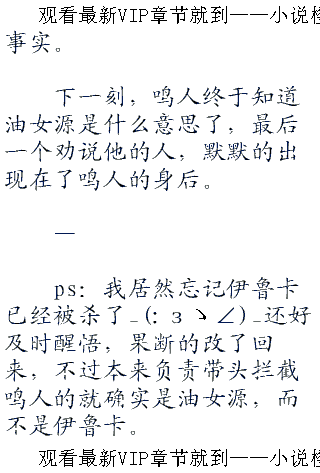 观看最新VIP章节就到——小说
事实。
下一刻，鸣人终于知道
油女源是什么意思了，最后
一个劝说他的人，默默的出
现在了鸣人的身后。
—
ps：我居然忘记伊鲁卡
已经被杀了_(:з丶∠)_还好
及时醒悟，果断的改了回
来，不过本来负责带头拦截
鸣人的就确实是油女源，而
不是伊鲁卡。
观看最新VIP章节就到——小说